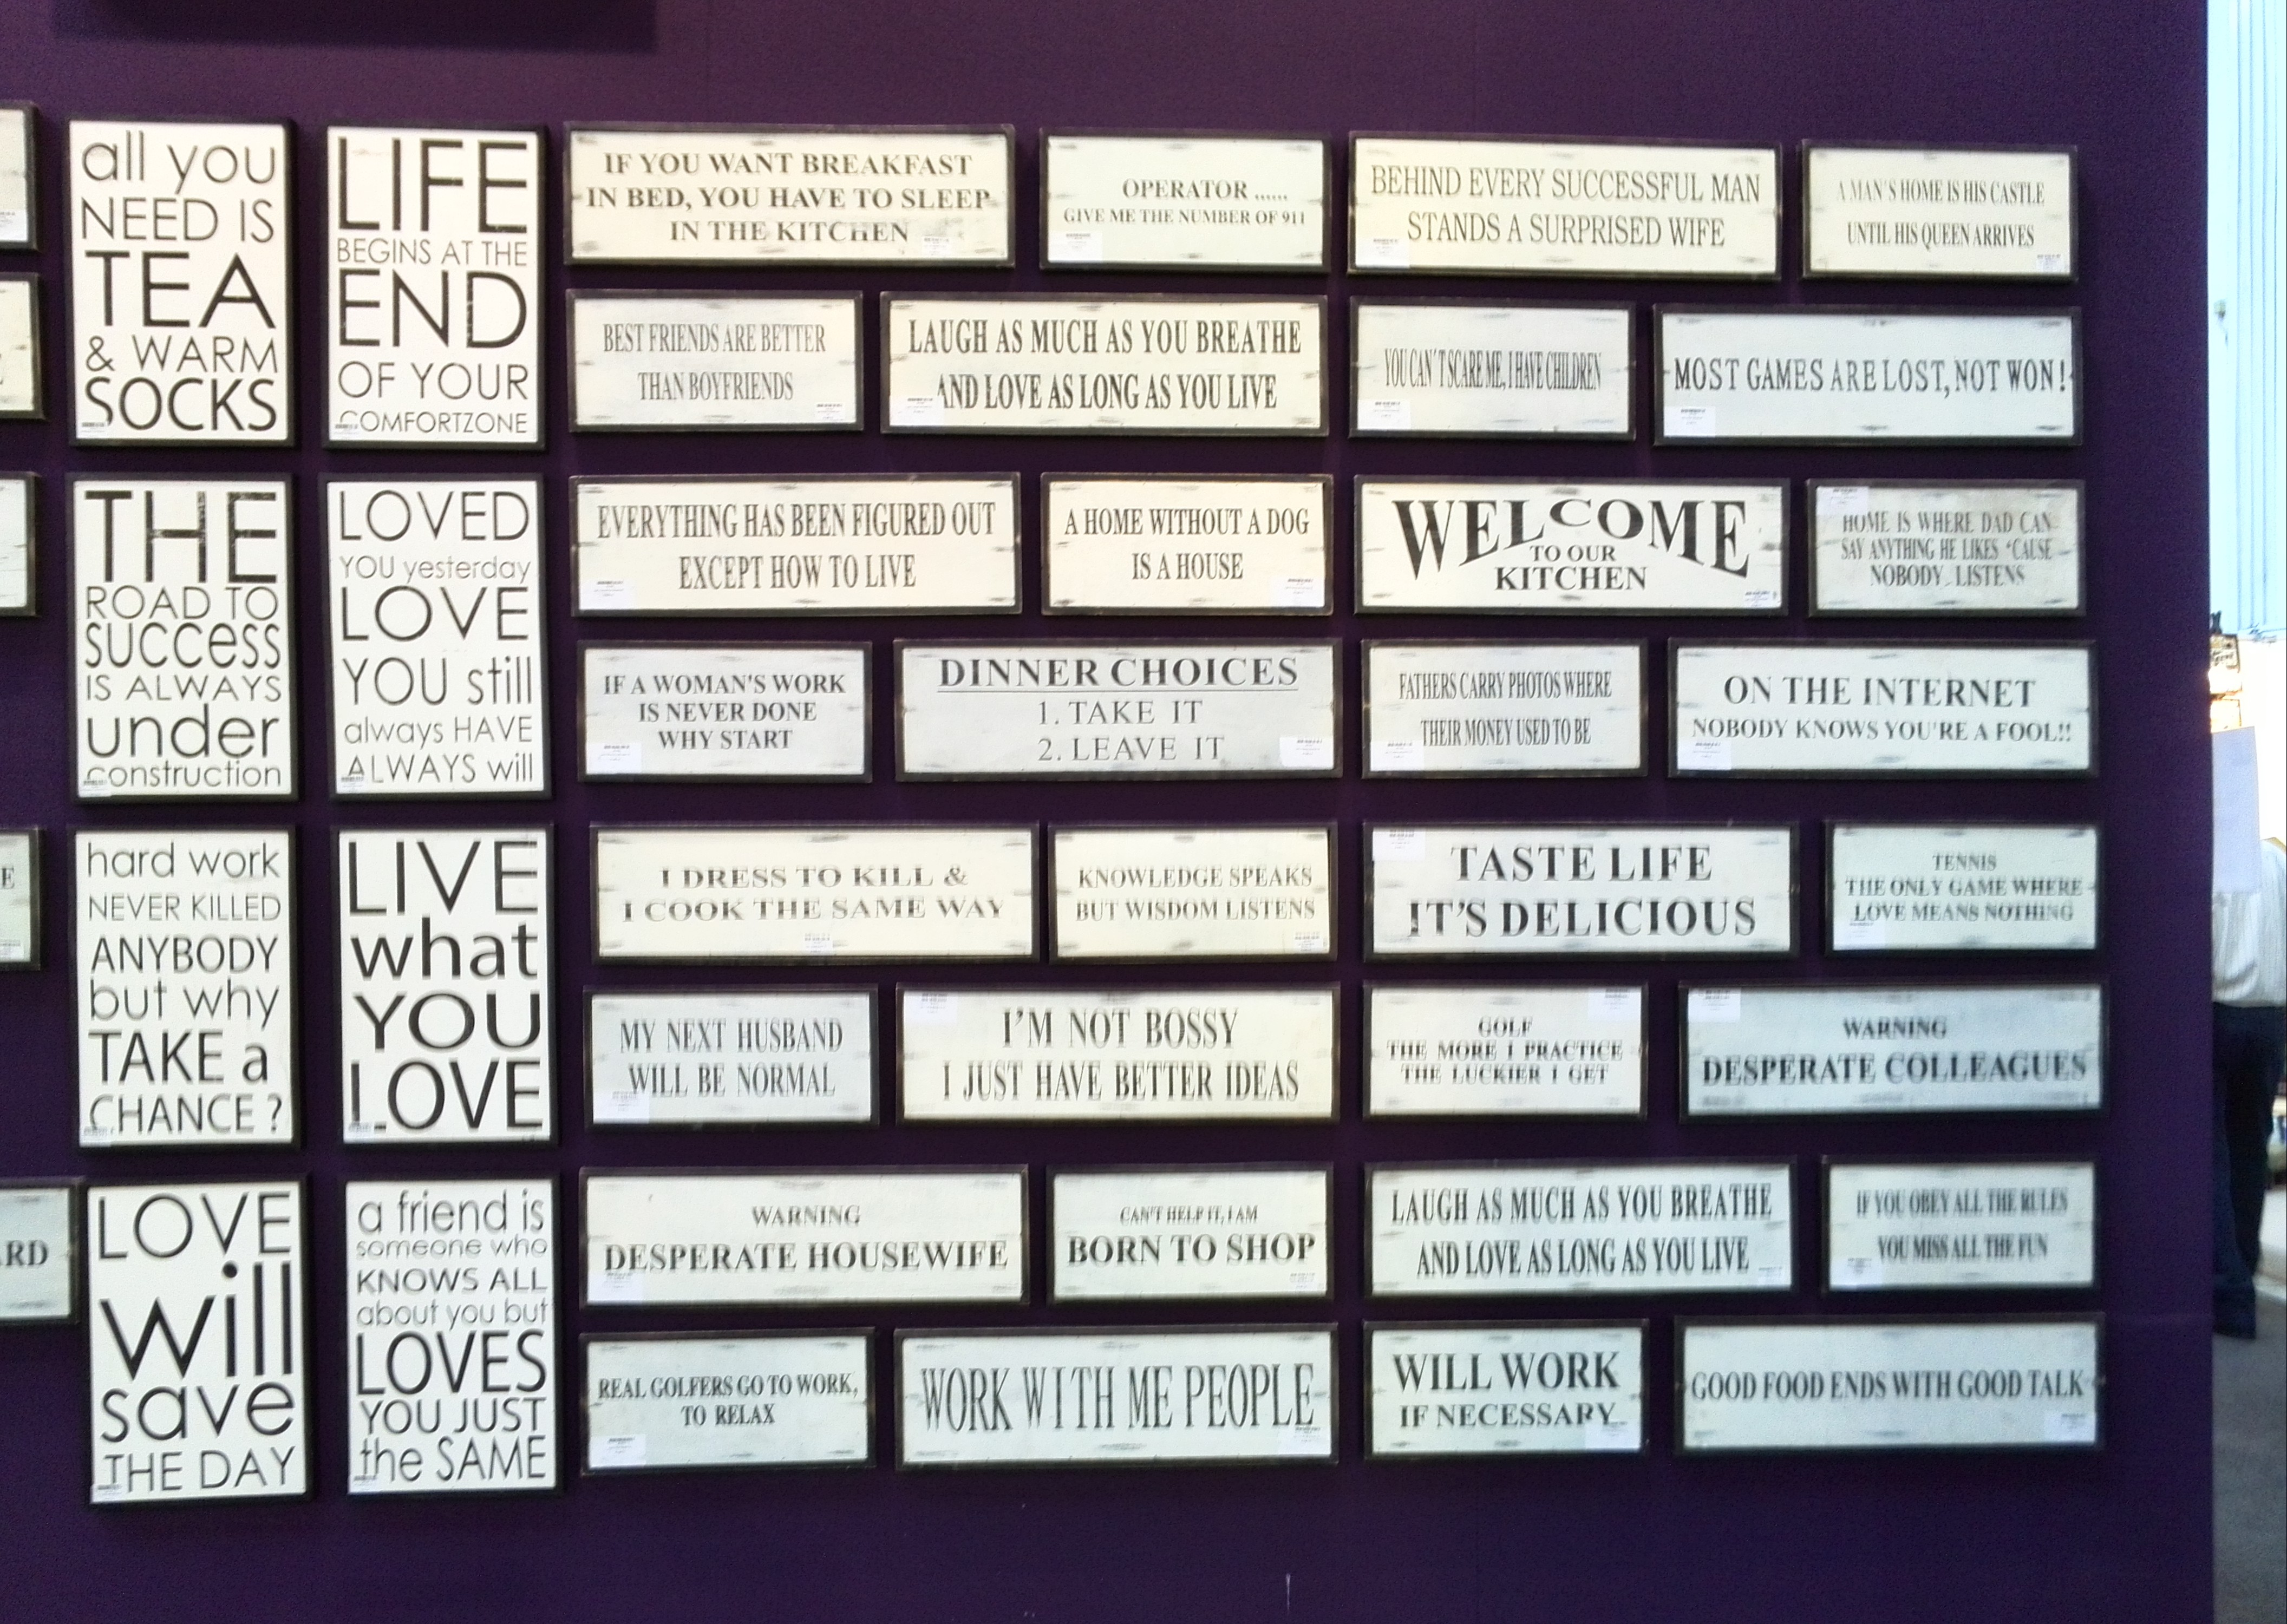 all you
NEED IS
TEA
& WARM
SOCKS
LIFE
BEGINS AT THE
END
OF YOUR
COMFORTZONE
IF YOU WANT BREAKFAST
IN BED, YOU HAVE TO SLEEP
IN THE KITCHEN
OPERATOR ......
GIVE ME THE NUMBER OF 911
BEHIND EVERY SUCCESSFUL MAN
STANDS A SURPRISED WIFE
A MAN'S HOME IS HIS CASTLE
UNTIL HIS QUEEN ARRIVES
BEST FRIENDS ARE BETTER
THAN BOYFRIENDS
LAUGH AS MUCH AS YOU BREATHE
AND LOVE AS LONG AS YOU LIVE
YOU CAN'T SCARE ME, I HAVE CHILDREN
MOST GAMES ARE LOST, NOT WON!
THE
ROAD TO
SUCCess
IS ALWAYS
under
construction
LOVED
YOU yesterday
LOVE
YOU still
always HAVE
ALWAYS will
EVERYTHING HAS BEEN FIGURED OUT
EXCEPT HOW TO LIVE
A HOME WITHOUT A DOG
IS A HOUSE
WELCOME
TO OUR
KITCHEN
HOME IS WHERE DAD CAN
SAY ANYTHING HE LIKES 'CAUSE
NOBODY LISTENS
IF A WOMAN'S WORK
IS NEVER DONE
WHY START
DINNER CHOICES
1. TAKE IT
2. LEAVE IT
FATHERS CARRY PHOTOS WHERE
THEIR MONEY USED TO BE
ON THE INTERNET
NOBODY KNOWS YOU'RE A FOOL!!
E
hard work
NEVER KILLED
ANYBODY
but why
TAKE a
CHANCE ?
LIVE
what
YOU
LOVE
I DRESS TO KILL &
I COOK THE SAME WAY
KNOWLEDGE SPEAKS
BUT WISDOM LISTENS
TASTE LIFE
IT'S DELICIOUS
TENNIS
THE ONLY GAME WHERE
LOVE MEANS NOTHING
MY NEXT HUSBAND
WILL BE NORMAL
I'M NOT BOSSY
I JUST HAVE BETTER IDEAS
GOLF
THE MORE I PRACTICE
THE LUCKIER I GET
WARNING
DESPERATE COLLEAGUES
ARD
LOVE
will
save
THE DAY
a friend is
someone who
KNOWS ALL
about you but
LOVES
YOU JUST
the SAME
WARNING
DESPERATE HOUSEWIFE
CAN'T HELP IT, I AM
BORN TO SHOP
LAUGH AS MUCH AS YOU BREATHE
AND LOVE AS LONG AS YOU LIVE
IF YOU OBEY ALL THE RULES
YOU MISS ALL THE FUN
REAL GOLFERS GO TO WORK,
TO RELAX
WORK WITH ME PEOPLE
WILL WORK
IF NECESSARY
GOOD FOOD ENDS WITH GOOD TALK